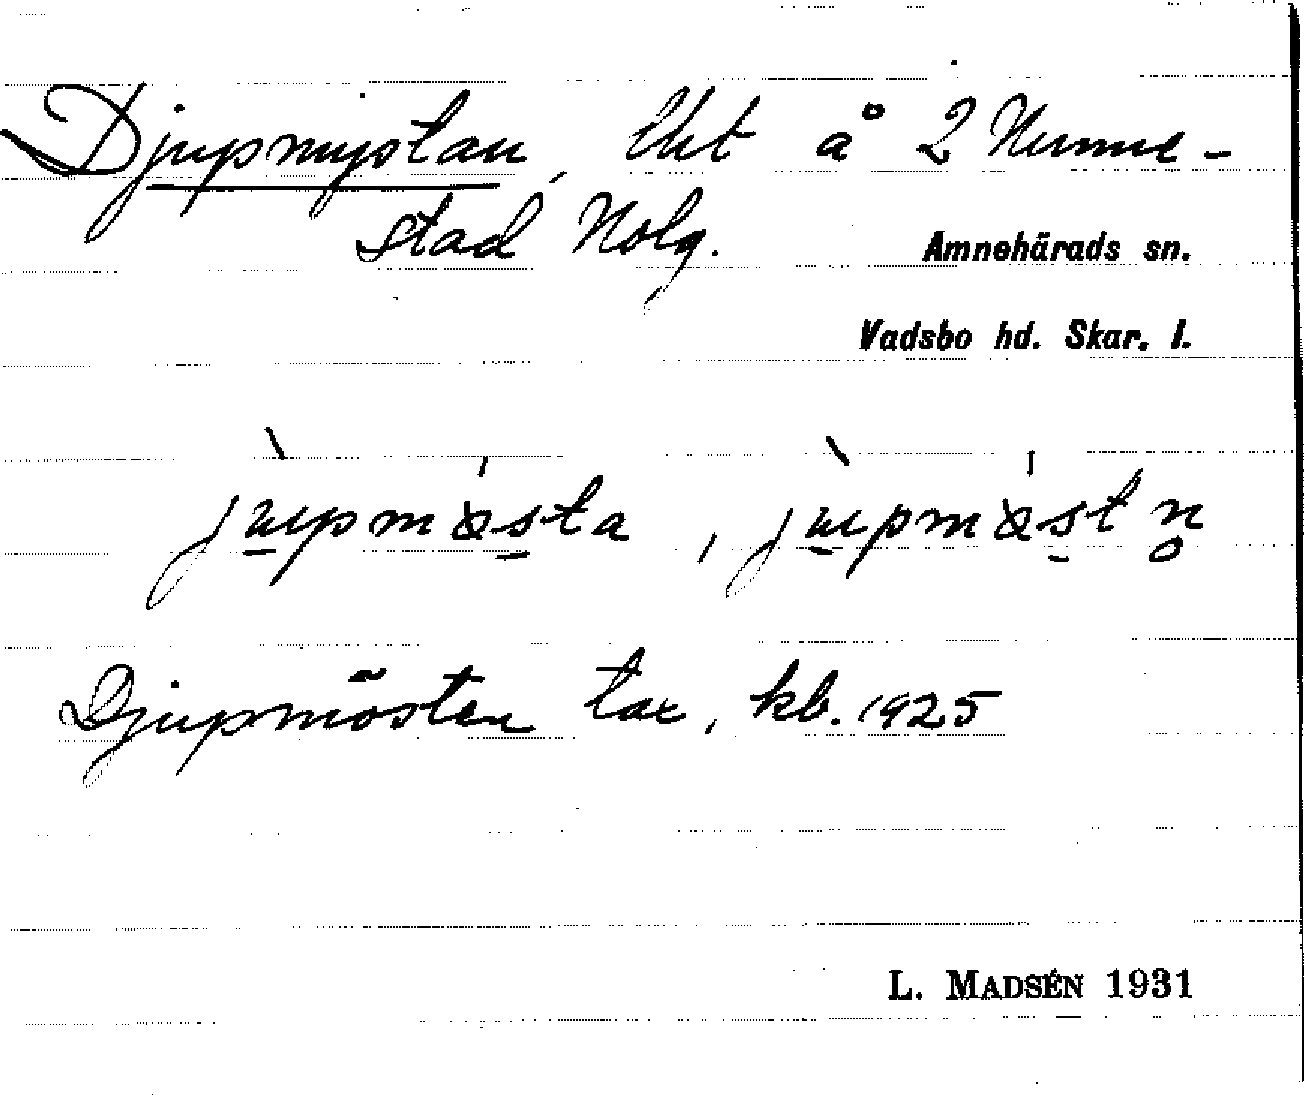 Djupmystan, Uht å 2 Numme-
stad, Nolg.
Amnehärads sn.
Vadsbo hd. Skar. l.
jùpmö́sta, jùpmö́stn̥
Djupmösten tax, kb. 1925
L. MADSÉN 1931